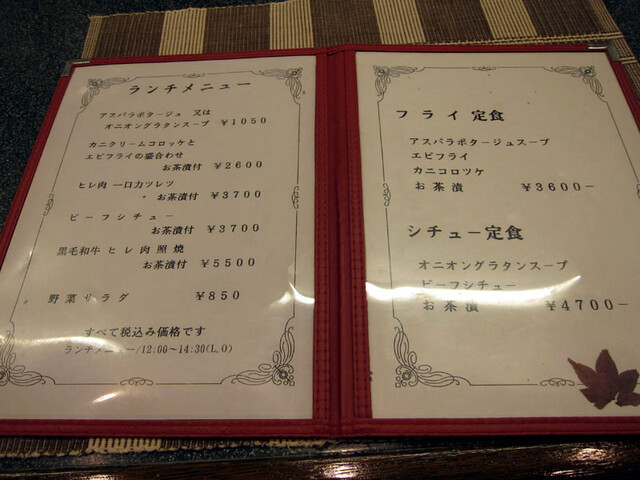 ランチメニュー
アスパラポタージュ 又は
オニオングラタンスープ ¥1050
カニクリームコロッケと
エビフライの盛合わせ
お茶漬付 ¥2600
ヒレ肉 一口カツレツ
お茶漬付 ¥3700
ビーフシチュー
お茶漬付 ¥3700
黒毛和牛 ヒレ肉照焼
お茶漬付 ¥5500
野菜サラダ ¥850
すべて税込み価格です
ランチメニュー/12:00〜14:30(L,O)
フライ定食
アスパラポタージュスープ
エビフライ
カニコロッケ
お茶漬 ¥3600-
シチュー定食
オニオングラタンスープ
ビーフシチュー
お茶漬 ¥4700-